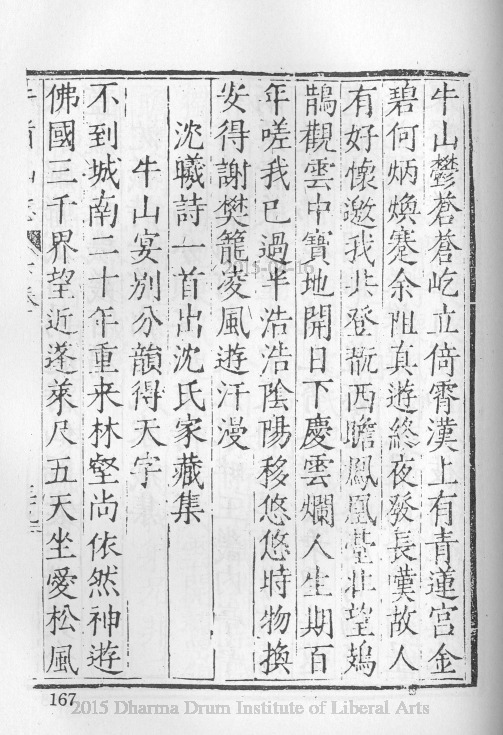 牛山鬱蒼蒼屹立倚霄漢上有青蓮宮金
碧何炳煥蹇余阻真遊終夜發長嘆故人
有好懷邀我共登翫西瞻鳳凰臺壯望鳷
鵲觀雲中寶地開日下慶雲爛人生期百
年嗟我已過半浩浩陰陽移悠悠時物換
安得謝樊籠凌風遊汗漫
沈曦詩一首出沈氏家藏集
牛山宴別分韻得天字
不到城南二十年重来林壑尚依然神遊
佛國三千界望近蓬萊尺五天坐愛松風
167
2015 Dharma Drum Institute of Liberal Arts